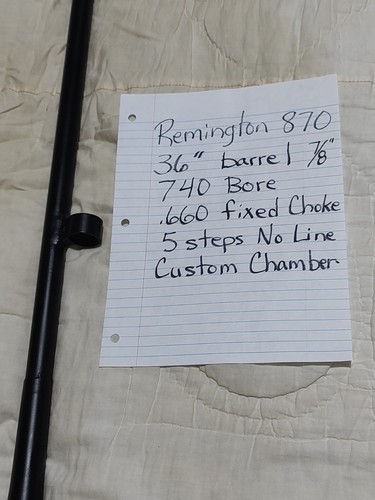 Remington 870
36" barrel 7/8"
740 Bore
.660 fixed Choke
5 steps No Line
Custom Chamber